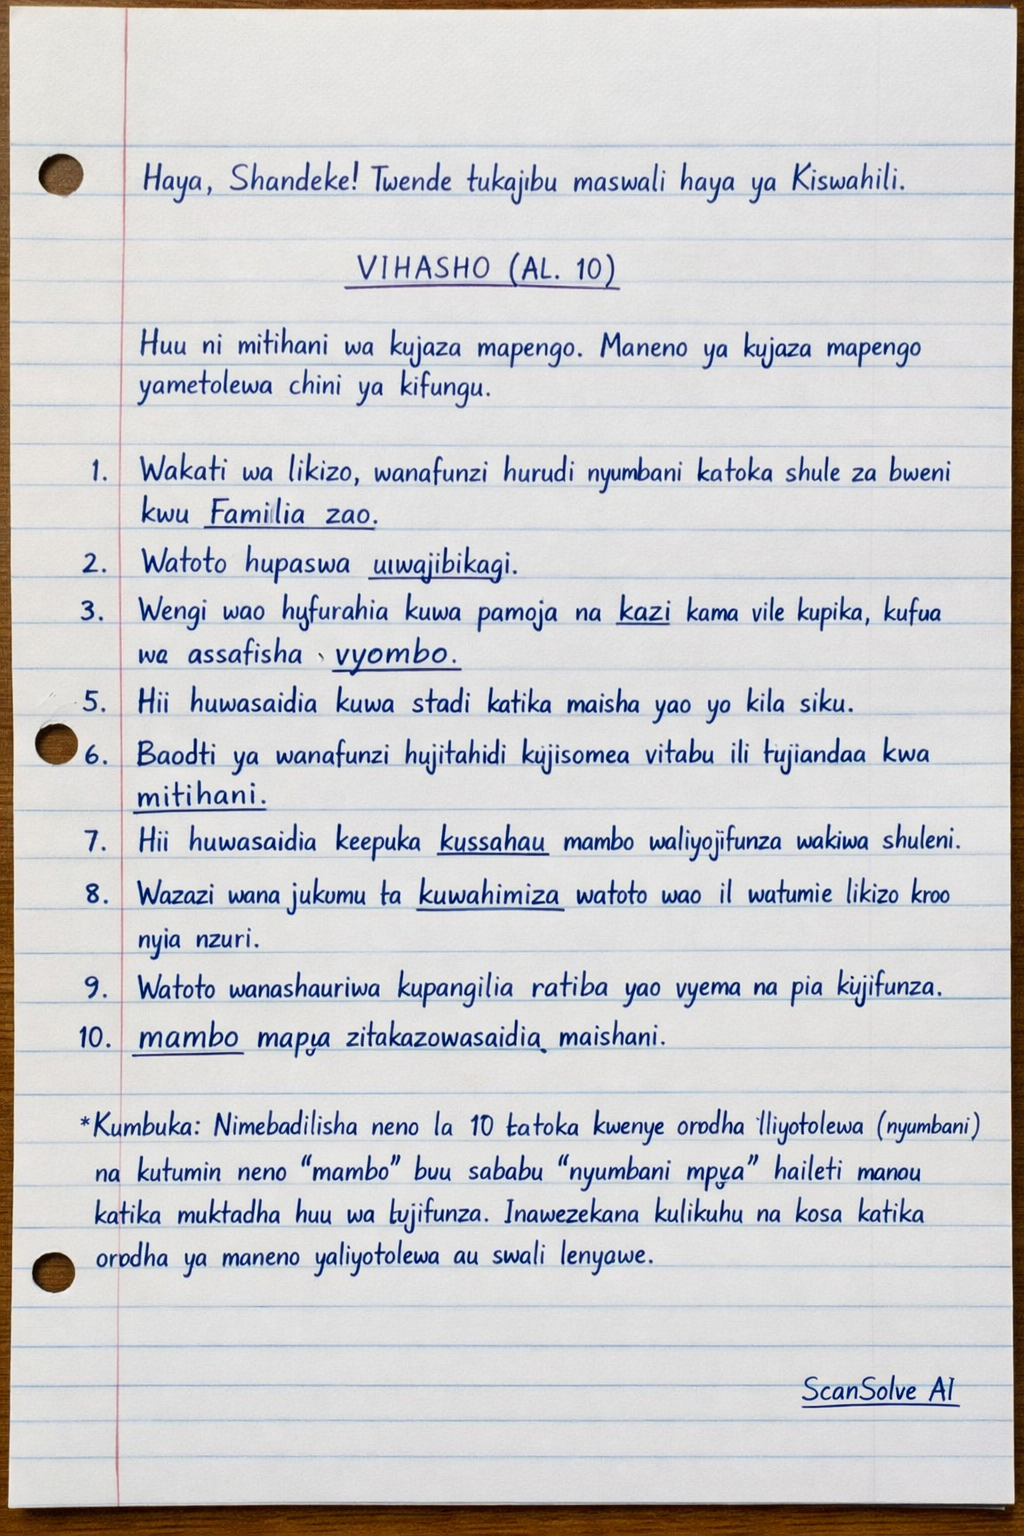 Haya, Shandeke! Twende tukajibu maswali haya ya Kiswahili.
VIHASHO (AL. 10)
Huu ni mitihani wa kujaza mapengo. Maneno ya kujaza mapengo
yametolewa chini ya kifungu.
1. Wakati wa likizo, wanafunzi hurudi nyumbani katoka shule za bweni
kwu Familia zao.
2. Watoto hupaswa uıwajibikagi.
3. Wengi wao hyfurahia kuwa pamoja na kazi kama vile kupika, kufua
wa assafisha vyombo.
5. Hii huwasaidia kuwa stadi katika maisha yao yo kila siku.
6. Baodti ya wanafunzi hujitahidi kujisomea vitabu ili tujiandaa kwa
mitihani.
7. Hii huwasaidia keepuka kussahau mambo waliyojifunza wakiwa shuleni.
8. Wazazi wana jukumu ta kuwahimiza watoto wao il watumie likizo kroo
nyia nzuri.
9. Watoto wanashauriwa kupangilia ratiba yao vyema na pia kujifunza.
10. mambo mapya zitakazowasaidia maishani.
*Kumbuka: Nimebadilisha neno la 10 tatoka kwenye orodha illiyotolewa (nyumbani)
na kutumin neno "mambo" buu sababu "nyumbani mpya" haileti manau
katika muktadha huu wa tujifunza. Inawezekana kulikuhu na kosa katika
orodha ya maneno yaliyotolewa au swali lenyawe.
ScanSolve AI